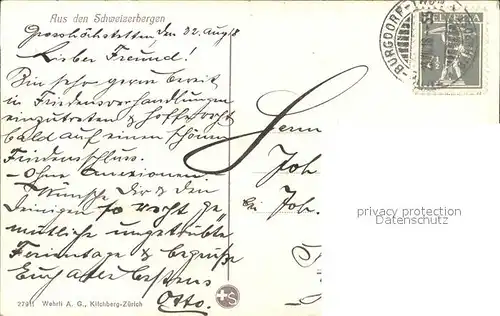 Aus den Schweizerbergen
Grosshöchstetten, den 22. Aug. 18
Lieber Freund!
Bin sehr gerne bereit
in Friedensverhandlungen
einzutreten & hoffe recht
bald auf einen schönen
Friedensschluss.
– Ohne Annexionen. –
Wünsche Dir & den
Deinigen so recht ge-
mütliche ungetrübte
Ferientage & begrüsse
Euch aller bestens
Otto.
27911 Wehrli A. G., Kilchberg-Zürich
BURGDORF
HELVETIA
Herrn
Joh
bei Joh.
privacy protection
Datenschutz